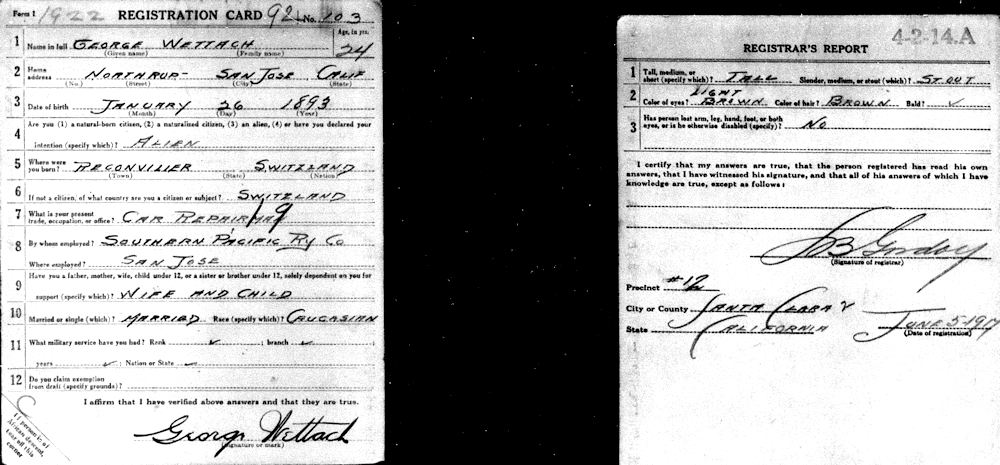 Form 1 1922 REGISTRATION CARD 92 No. 103
1 Name in full GEORGE WETTACH Age, in yrs. 24
(Given name) (Family name)
2 Home address NORTHRUP- SAN JOSE CALIF
(No.) (Street) (City) (State)
3 Date of birth JANUARY 26 1893
(Month) (Day) (Year)
4 Are you (1) a natural-born citizen, (2) a naturalized citizen, (3) an alien, (4) or have you declared your
intention (specify which)? ALIEN
5 Where were you born? RECONVILIER SWITZLAND
(Town) (State) (Nation)
6 If not a citizen, of what country are you a citizen or subject? SWITZLAND
7 What is your present trade, occupation, or office? CAR REPAIRMAN 19
8 By whom employed? SOUTHERN PACIFIC RY CO
Where employed? SAN JOSE
9 Have you a father, mother, wife, child under 12, or a sister or brother under 12, solely dependent on you for
support (specify which)? WIFE AND CHILD
10 Married or single (which)? MARRIED Race (specify which)? CAUCASIAN
11 What military service have you had? Rank ✓ ; branch ✓
years ✓ ; Nation or State ✓
12 Do you claim exemption from draft (specify grounds)?
I affirm that I have verified above answers and that they are true.
George Wettach
(Signature or mark)
If person is of
African descent,
tear off this
corner
4-2-14.A
REGISTRAR'S REPORT
1 Tall, medium, or short (specify which)? TALL Slender, medium, or stout (which)? STOUT
2 Color of eyes? LIGHT BROWN Color of hair? BROWN Bald? ✓
3 Has person lost arm, leg, hand, foot, or both eyes, or is he otherwise disabled (specify)? NO
I certify that my answers are true, that the person registered has read his own
answers, that I have witnessed his signature, and that all of his answers of which I have
knowledge are true, except as follows:
(Signature of registrar)
Precinct #12
City or County SANTA CLARA
State CALIFORNIA JUNE 5-1917
(Date of registration)